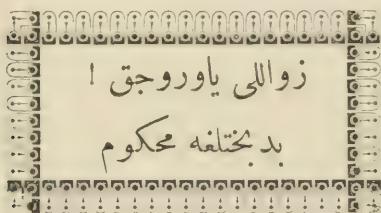 زواللی یاوروجق !
بدبختلغه محکوم